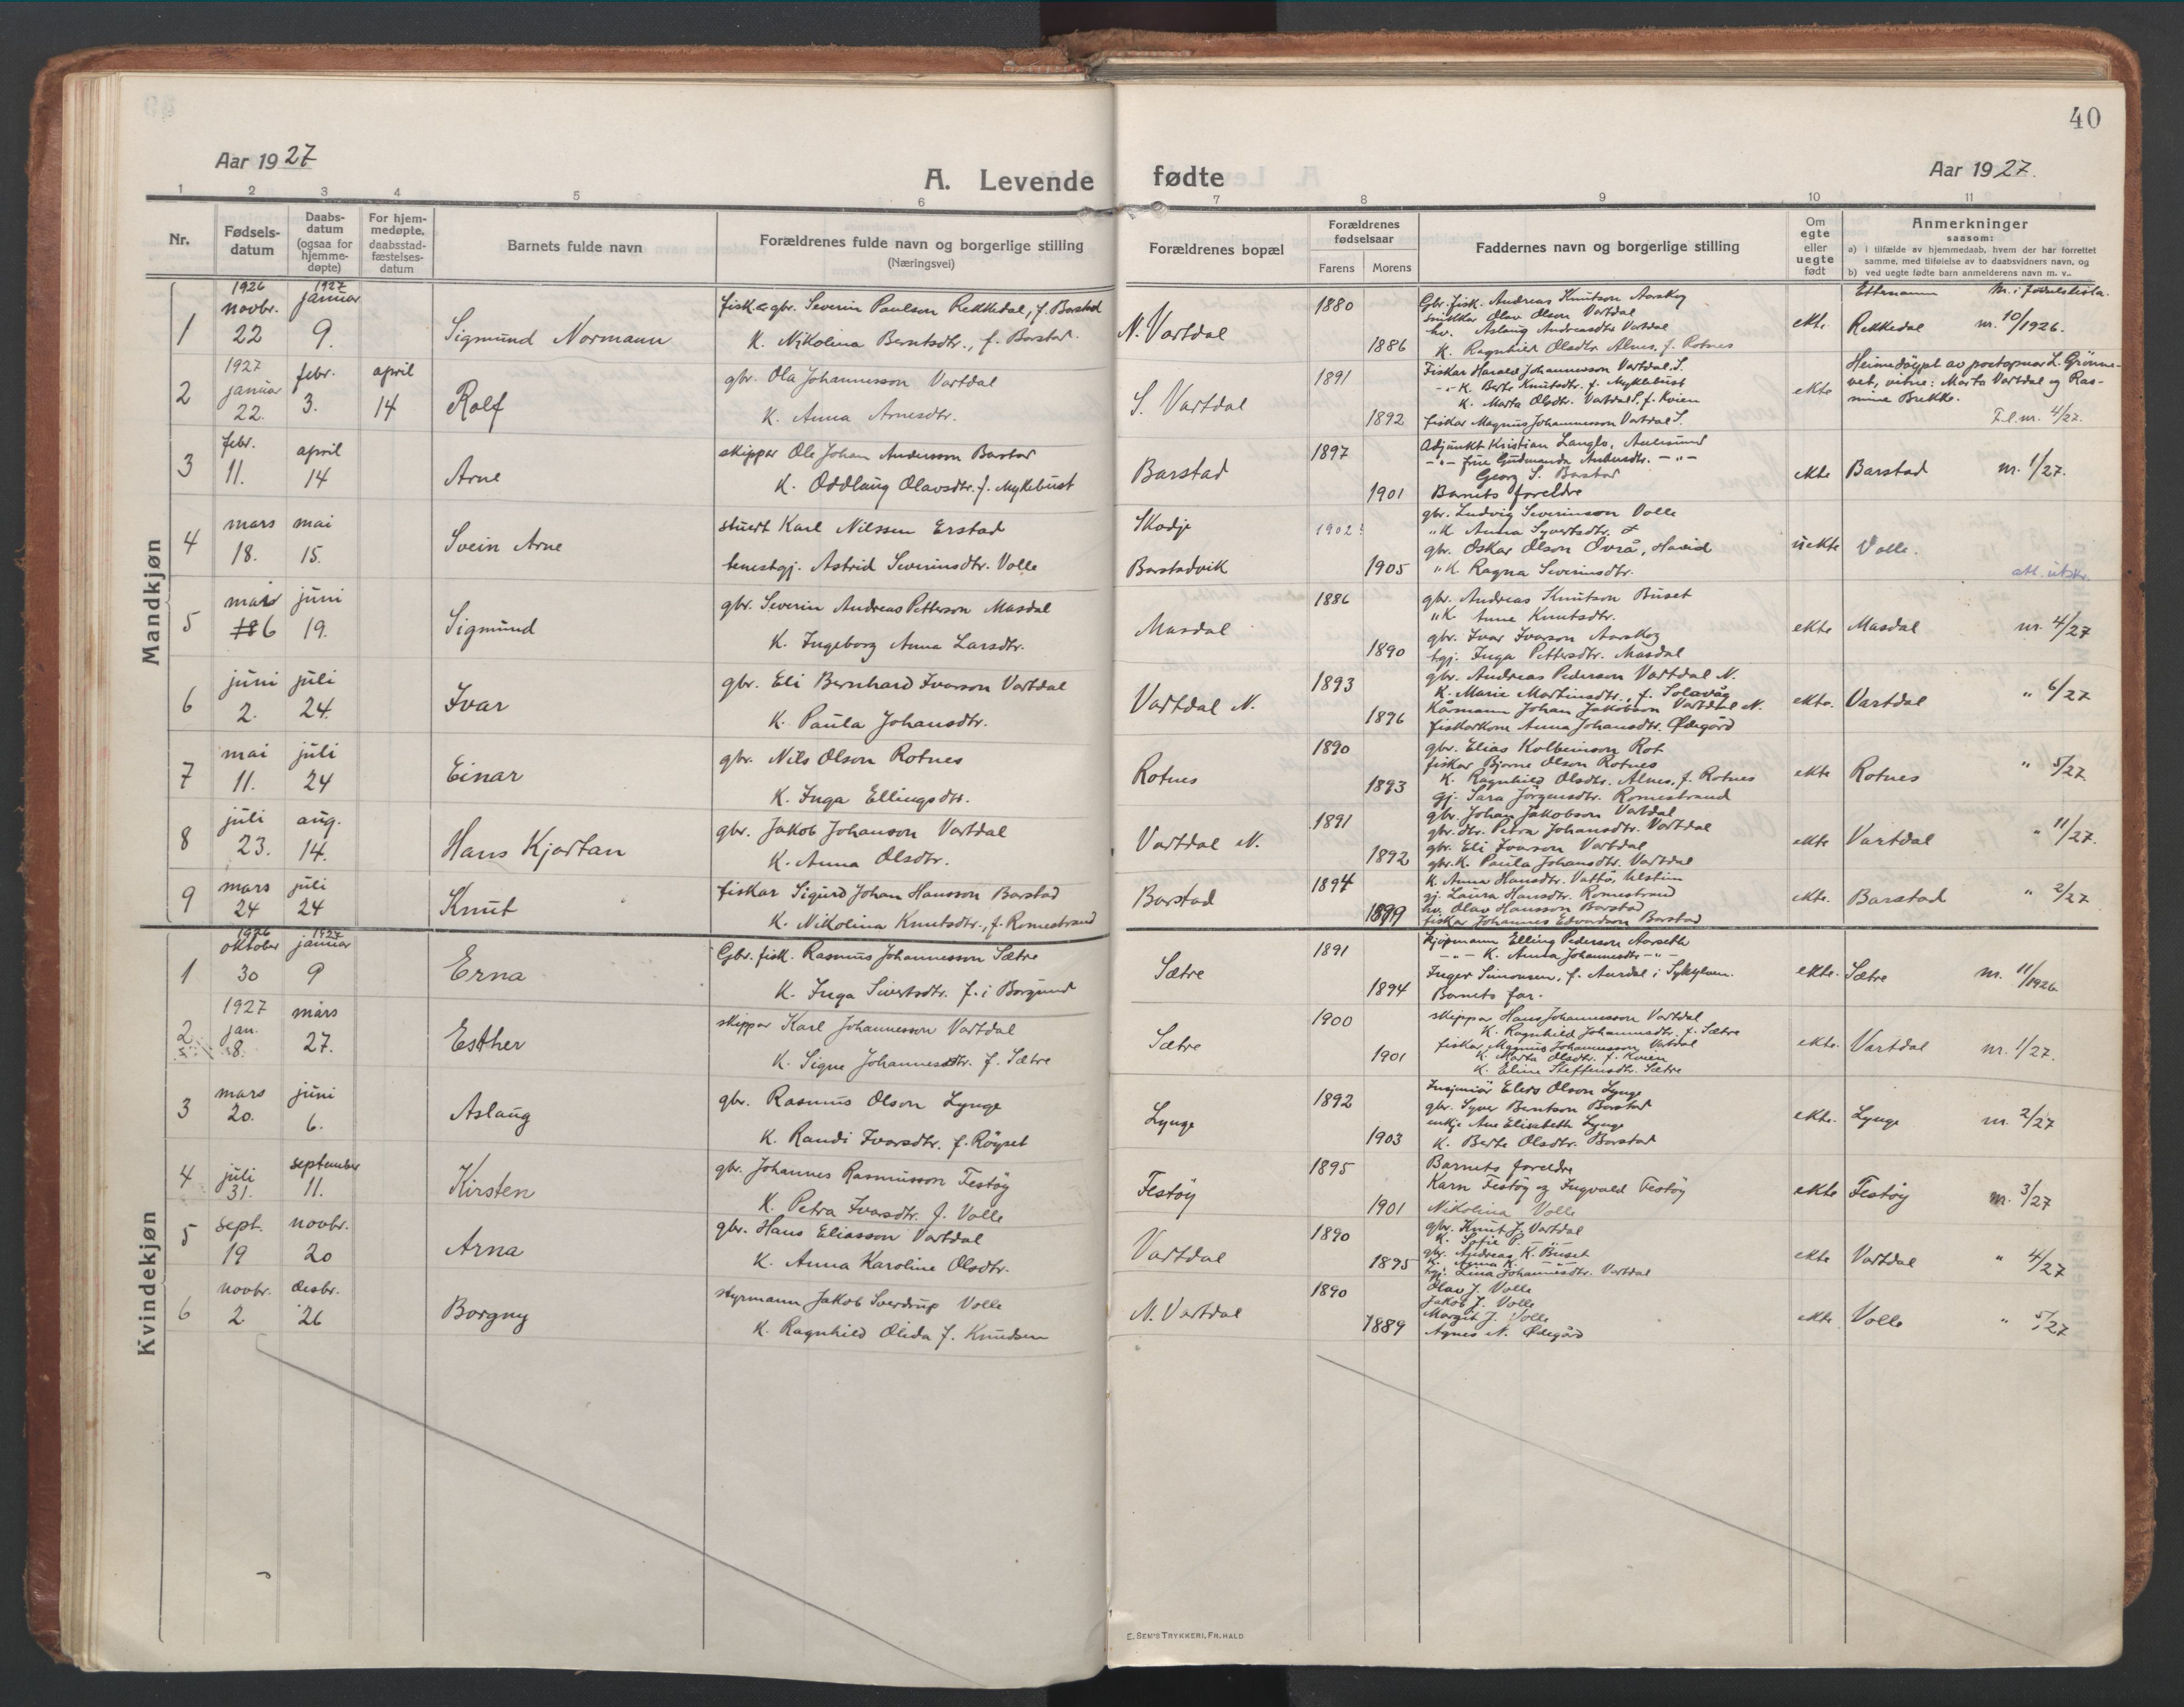 40
Aar 1927
A. Levende fødte
Aar 1927.
1 2 3 4 5 6 7 8 9 10 11
Nr.
Fødsels-datum
Daabs-datum (ogsaa for hjemme-døpte)
For hjem-medøpte, daabsstad-fæstelses-datum
Barnets fulde navn
Forældrenes fulde navn og borgerlige stilling
(Næringsvei)
Forældrenes bopæl
Forældrenes fødselsaar
Farens Morens
Faddernes navn og borgerlige stilling
Om egte eller uegte født
Anmerkninger
saasom:
a) i tilfælde av hjemmedaab, hvem der har forrettet
samme, med tilføielse av to daabsvidners navn, og
b) ved uegte fødte barn anmelderens navn m. v..
Mandkjøn
1
1926 novbr. 22
1927 januar 9.
Sigmund Normann
fisk. & gbr. Severin Paulson Rekkedal, f. Barstad
K. Nikolina Berntsdtr., f. Barstad.
N. Vartdal
1880
1886
Gbr. fisk. Andreas Knutson Aarskog
snikkar Olav Olson Vartdal
hv. Aslaug Andreasdtr Vartdal
K. Ragnhild Olsdtr. Alnes, f. Rotnes
ekte
Etternamn Nr. i fødselslista.
Rekkedal nr. 10/1926.
2
1927 januar 22.
febr. 3.
april 14
Rolf
gbr. Ola Johannesson Vartdal
K. Anna Arnesdtr.
S. Vartdal
1891
1892
Fiskar Harald Johannesson Vartdal, S.
-"- K. Berte Knutsdtr. f. Myklebust
K. Marta Olsdtr. Vartdal S. f. Kvien
fiskar Magnus Johannesson Vartdal S.
ekte
Heimedøypt av postopnar L. Grönne-
vet, vitne: Marta Vartdal og Ras-
mine Brekke.
F.l. nr. 4/27.
3
febr. 11.
april 14
Arne
skippar Ole Johan Andersson Barstad
K. Oddlaug Olavsdtr. f. Myklebust
Barstad
1897
1901
Adjunkt Kristian Langlo, Aalesund
-"- frue Gudmunda -"-
Georg S. Barstad
Barnets foreldre
ekte
Barstad nr. 1/27.
4
mars 18.
mai 15.
Svein Arne
stuert Karl Nilssen Erstad
tenestgj. Astrid Severinsdtr. Volle
Skodje
Barstadvik
1902
1905
gbr. Ludvig Severinson Volle
"K Anna Syvertsdtr.
gbr. Oskar Olson Ovrå, Havid
"K. Ragna Severinsdtr.
uekte
Volle.
att. utskr.
5
mai 6
juni 19.
Sigmund
gbr. Severin Andreas Petterson Masdal
K. Ingeborg Anna Larsdtr.
Masdal
1886
1890
gbr. Andreas Knutson Buset
"K Anne Knutsdtr.
gbr. Ivar Ivarson Aarskog
tgj. Inga Pettersdtr. Masdal
ekte
Masdal nr. 4/27
6
juni 2.
juli 24.
Ivar
gbr. Eli Bernhard Ivarson Vartdal
K. Paula Johansdtr.
Vartdal N.
1893
1896
gbr. Andreas Pederson Vartdal N.
K. Marie Martinsdtr., f. Solavåg
Kårmann Johan Jakobson Vartdal N.
fiskarkone Anna Johansdtr. Ødegård
ekte.
Vartdal " 6/27
7
mai 11.
juli 24
Einar
gbr. Nils Olson Rotnes
K. Inga Ellingsdtr.
Rotnes
1890
1893
gbr. Elias Kolbeinson Rot
fiskar Bjarne Olson Rotnes
K. Ragnhild Olsdtr. Alnes, f. Rotnes
gj. Sara Jörgensdtr. Romestrand
ekte
Rotnes " 5/27
8
juli 23.
aug. 14.
Hans Kjartan
gbr. Jakob Johanson Vartdal
K. Anna Olsdtr.
Vartdal N.
1891
1892
gbr. Johan Jakobson Vartdal
gbr. dtr. Petra Johansdtr. Vartdal
gbr. Eli Ivarson Vartdal
gbr. K. Paula Johansdtr. Vartdal
ekte
Vartdal " 11/27.
9
mars 24
juli 24
Knut
fiskar Sigurd Johan Hansson Barstad
K. Nikolina Knutsdtr., f. Romestrand
Barstad
1894
1899
K. Anna Hansdtr. Vattö, Ulstein
gj. Laura Hansdtr. Romestrand
hv. Olav Hansson Barstad
fiskar Johannes Edvardson Barstad
ekte.
Barstad " 2/27
Kvindekjøn
1
1926 oktober 30
1927 januar 9
Erna
Gbr. fisk. Rasmus Johannesson Sætre
K. Inga Sivertsdtr. f. i Borgund
Sætre
1891
1894
Kjøpmann Elling Pederson Aarseth
-"- K. Anna Johannesdtr -"-
Inger Simonsen, f. Aurdal i Sykkylven.
Barnets far.
ekte.
Sætre nr. 11/1926
2
1927 jan. 8.
mars 27.
Esther
skippar Karl Johannesson Vartdal
K. Signe Johannesdtr. f. Sætre
Sætre
1900
1901
skippar Hans Johannesson Vartdal
K. Ragnhild Johannesdtr. f. Sætre
fiskar Magnus Johannesson Vartdal
K. Marta Olsdtr. f. Kvien
K. Eline Steffensdtr. Sætre
ekte.
Vartdal nr. 1/27.
3
mars 20.
juni 6.
Aslaug
gbr. Rasmus Olson Lynge
K. Randi Ivarsdtr. f. Röyset
Lynge
1892
1903
Insjeniör Elias Olson Lynge
gbr. Syver Berntson Barstad
enkje Ane Elisabeth Lynge
K. Berte Olsdtr. Barstad
ekte.
Lynge nr. 2/27
4
juli 31.
september 11.
Kirsten
gbr. Johannes Rasmusson Festöy
K. Petra Ivarsdtr. f. Volle
Festöy
1895
1901
Barnets foreldre
Karn Festöy og Ingvald Festöy
Nikolina Volle
ekte
Festöy nr. 3/27
5
sept. 19
novbr. 20
Arna
gbr. Hans Eliasson Vartdal
K. Anna Karoline Olsdtr.
Vartdal
1890
1895
gbr. Knut J. Vartdal
K. Sofie P. -"-
gbr. Andreas K. Buset
K. Anna K. -"-
tgj. Lina Johannesdtr. Vartdal
ekte
Vartdal " 4/27
6
novbr. 2
desbr. 26
Borgny
styrmann Jakob Sverdrup Volle
K. Ragnhild Olida f. Knudsen
N. Vartdal
1890
1889
Olav J. Volle
Jakob J. Volle
Margit J. Volle
Agnes N. Ødegård
ekte
Volle " 5/27
E. SEM'S TRYKKERI, FR. HALD